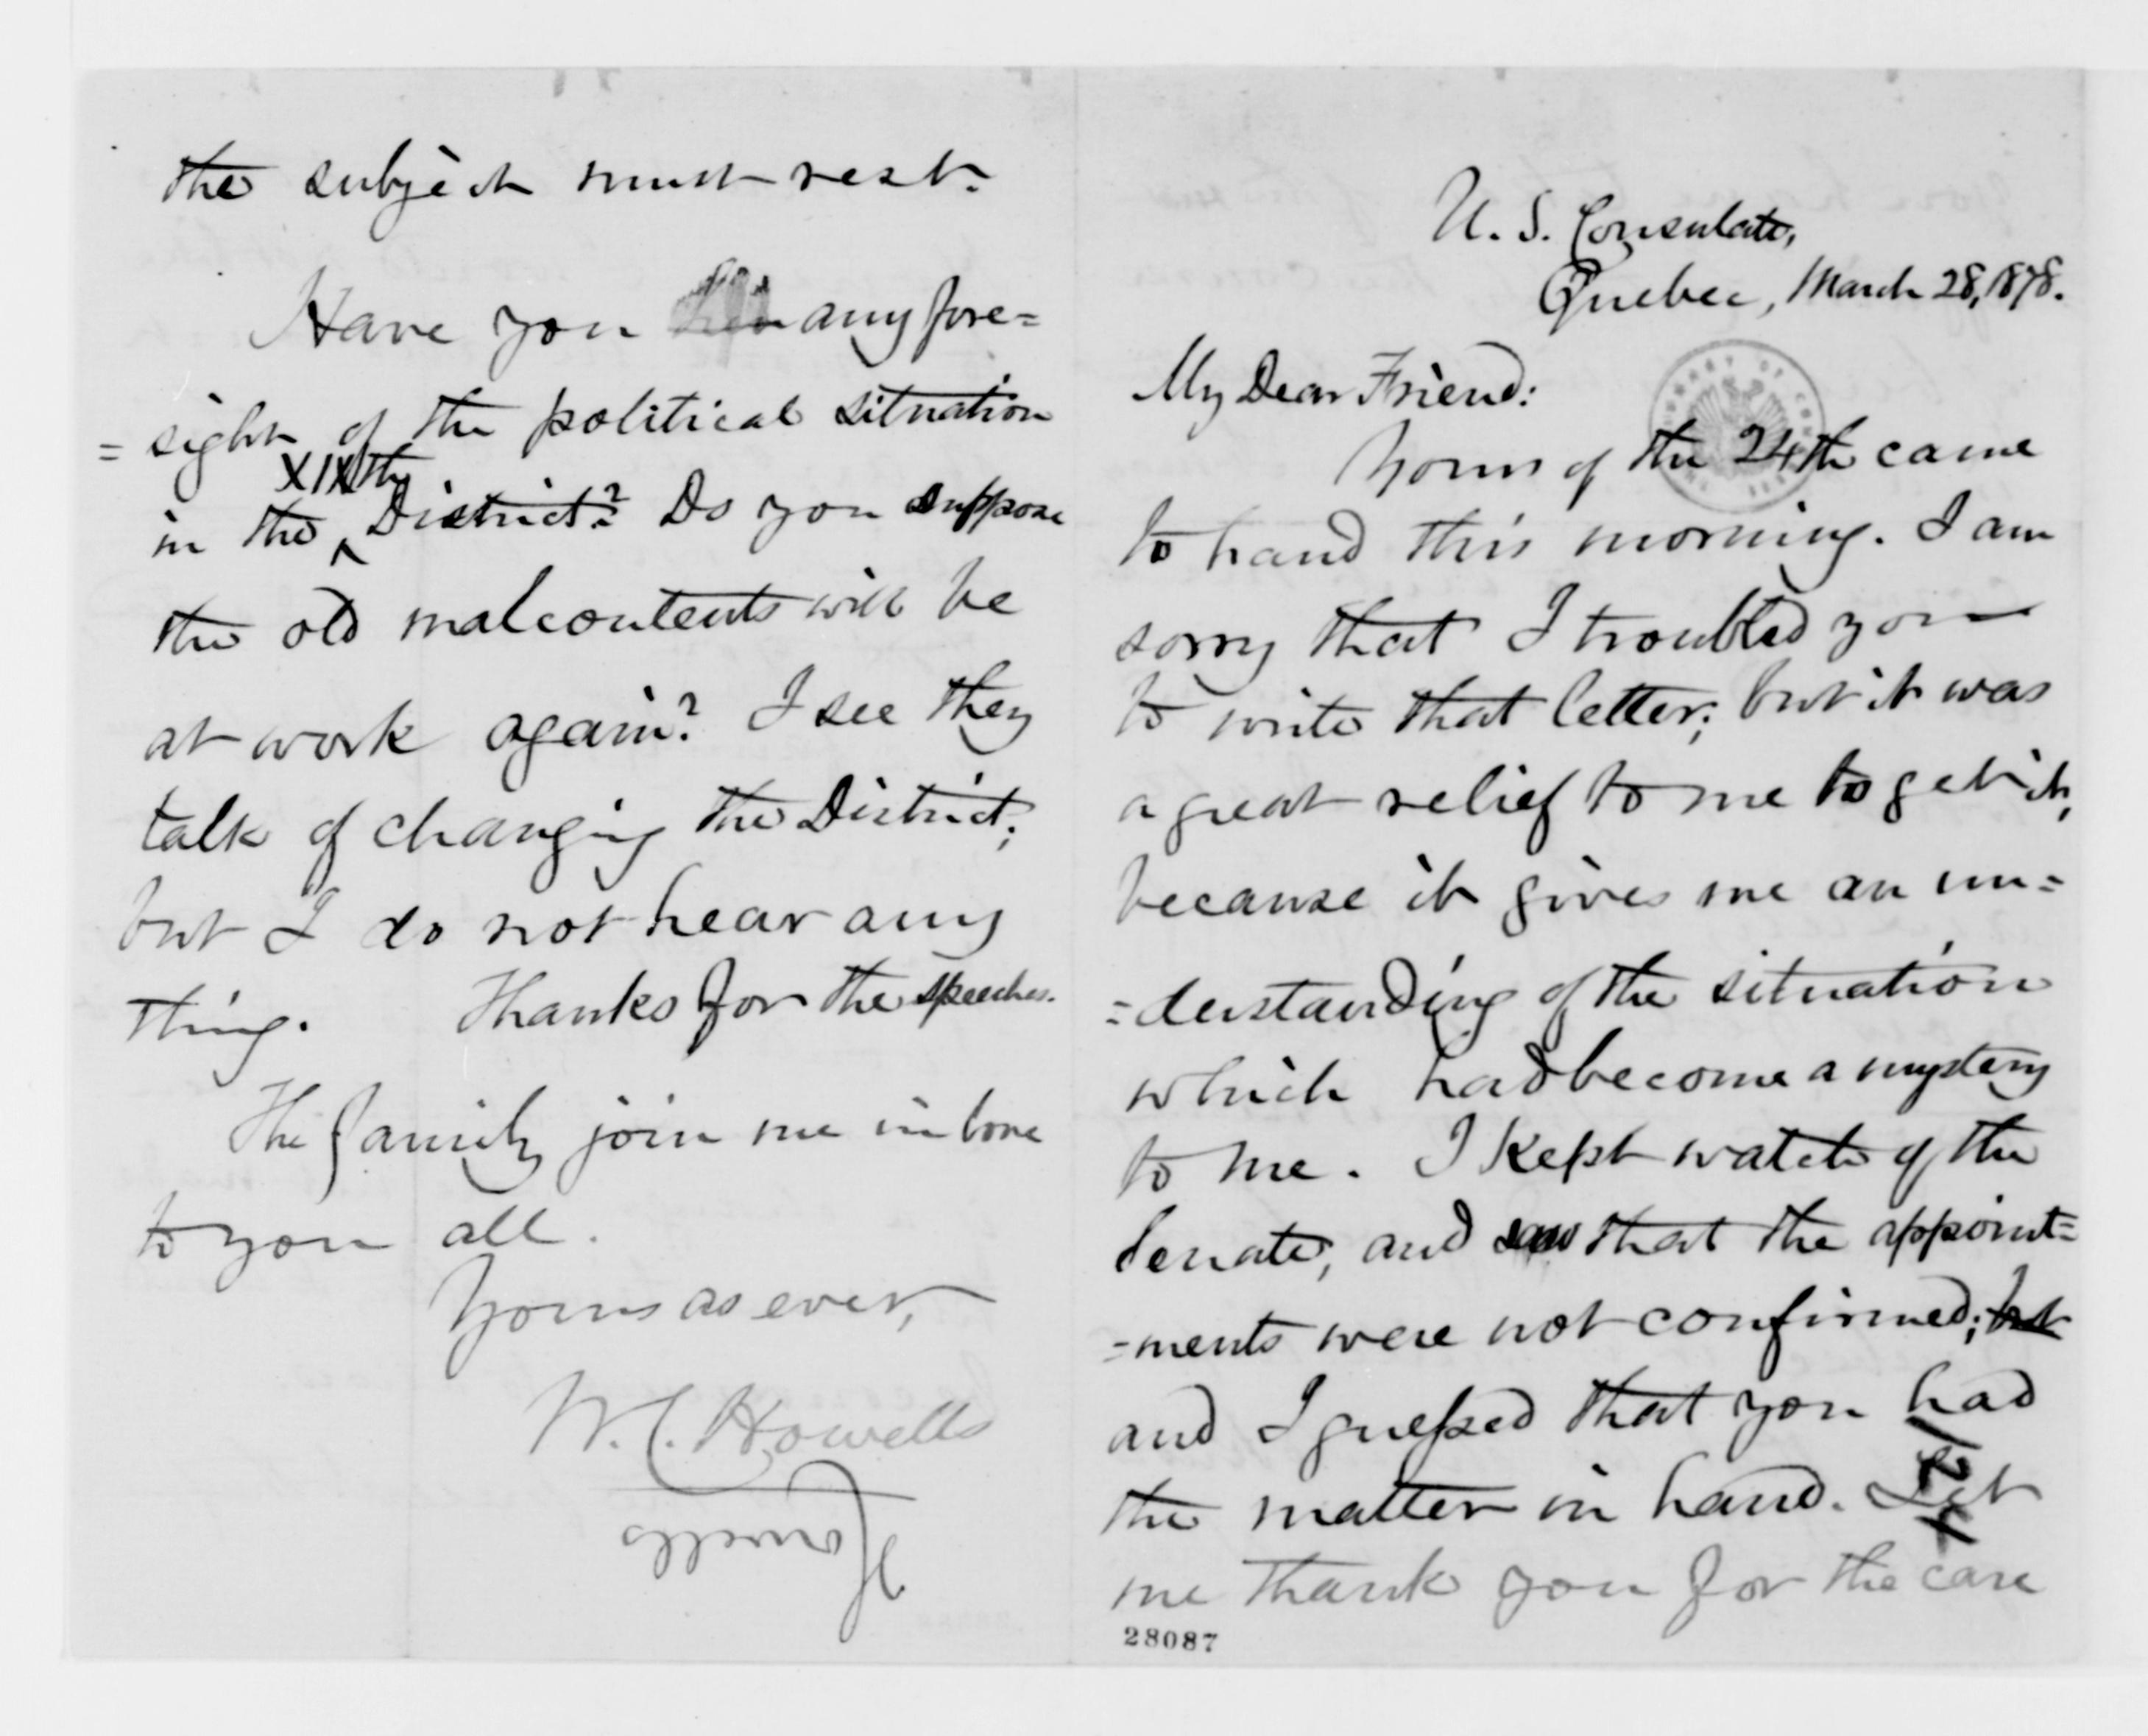 U. S. Consulate,
Quebec, March 28, 1878.
My Dear Friend:
Yours of the 24th came
to hand this morning. I am
sorry that I troubled you
to write that letter; but it was
a great relief to me to get it,
because it gives me an un=
=derstanding of the situation
which had become a mystery
to me. I kept watch of the
Senate, and saw that the appoint=
=ments were not confirmed; but
and I guessed that you had
the matter in hand. Let
me thank you for the care
28087
the subject must rest.
Have you any fore=
=sight of the political situation
in the XIXth District? Do you suppose
the old malcontents will be
at work again? I see they
talk of changing the District;
but I do not hear any
thing. Thanks for the speeches.
The family join me in love
to you all.
Yours as ever,
W. C. Howells
Howells